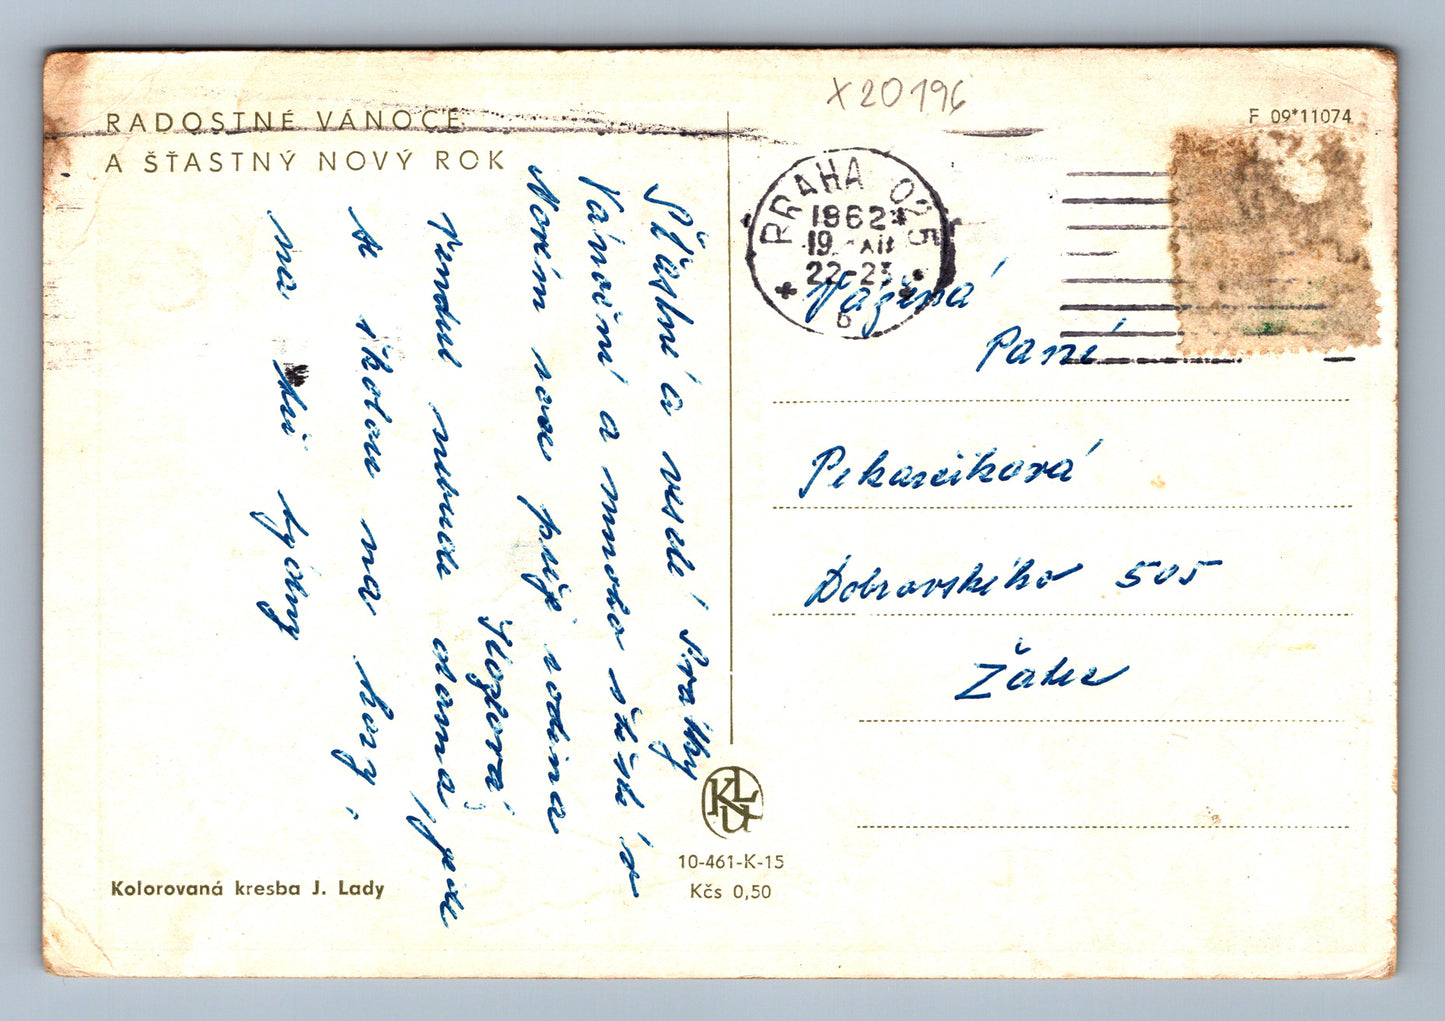 RADOSTNÉ VÁNOCE
A ŠŤASTNÝ NOVÝ ROK
Šťastné a veselé svátky
Vánoční a mnoho štěstí v
Novém roce přeje rodina
nebude doma, jede
se školou na hory,
na týdny
Kolorovaná kresba J. Lady
KLNU
10-461-K-15
Kčs 0,50
X20196
F 09*11074
PRAHA 025
1962
19. XII
22-23
6
Vážená
Paní
Pekarčíková
Dobrovského 505
Žatec